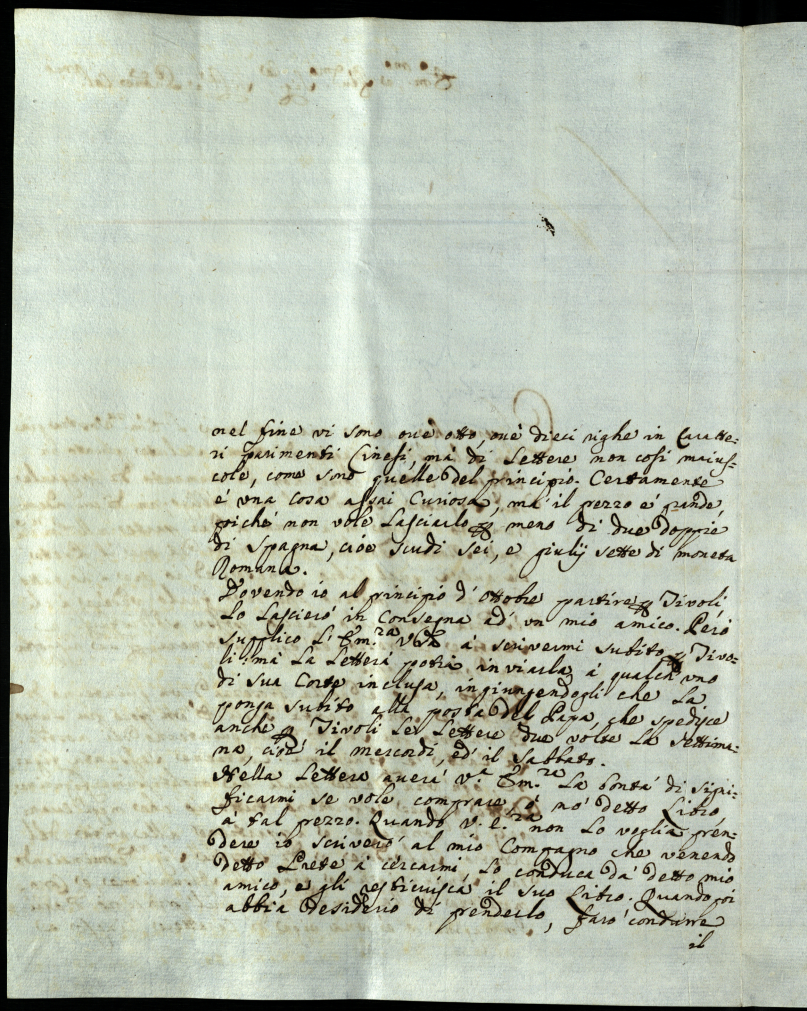 nel fine vi sono ove otto, ove dieci righe in Caratte-
ri parimenti Cinesi, mà di Lettere non così maius-
cole, come sono quelle del principio. Certamente
e' una cosa assai Curiosa, ma' il prezzo e' grande,
poiche' non vole Lasciarlo p meno di due doppie
di Spagna, cioe scudi sei, e giulij sette di moneta
Romana.
Dovendo io al principio d' ottobre partire p Tivoli
Lo Lasciero' in Consegna ad' un mio amico. Però
supplico L' Em.za à scrivermi subito p Tivo-
li: mà La Lettera potrà inviarla à qualch' uno
di sua Corte inclusa, ingiungendogli che La
ponga subito alla posta del Papa, che spedisce
anche p Tivoli Le Lettere due volte La settima-
na, cioè il mercordì, ed' il Sabbato.
Nella Lettera averà V.a Em.za La bontà di signi-
ficarmi se vole comprare ò nò detto Libro
a tal prezzo. Quando V. E.za non Lo voglia pren-
dere io scriverò al mio Compagno che venendo
detto Prete à cercarmi, Lo conduca da' detto mio
amico, e gli restituisca il suo Libro. Quando poi
abbia desiderio di prenderlo, farò condurre
il